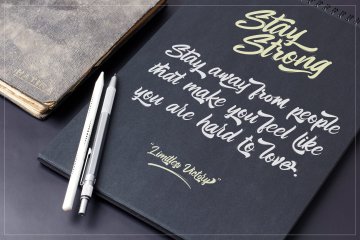 Stay
Strong
Stay away from people
that make you feel like
you are hard to love.